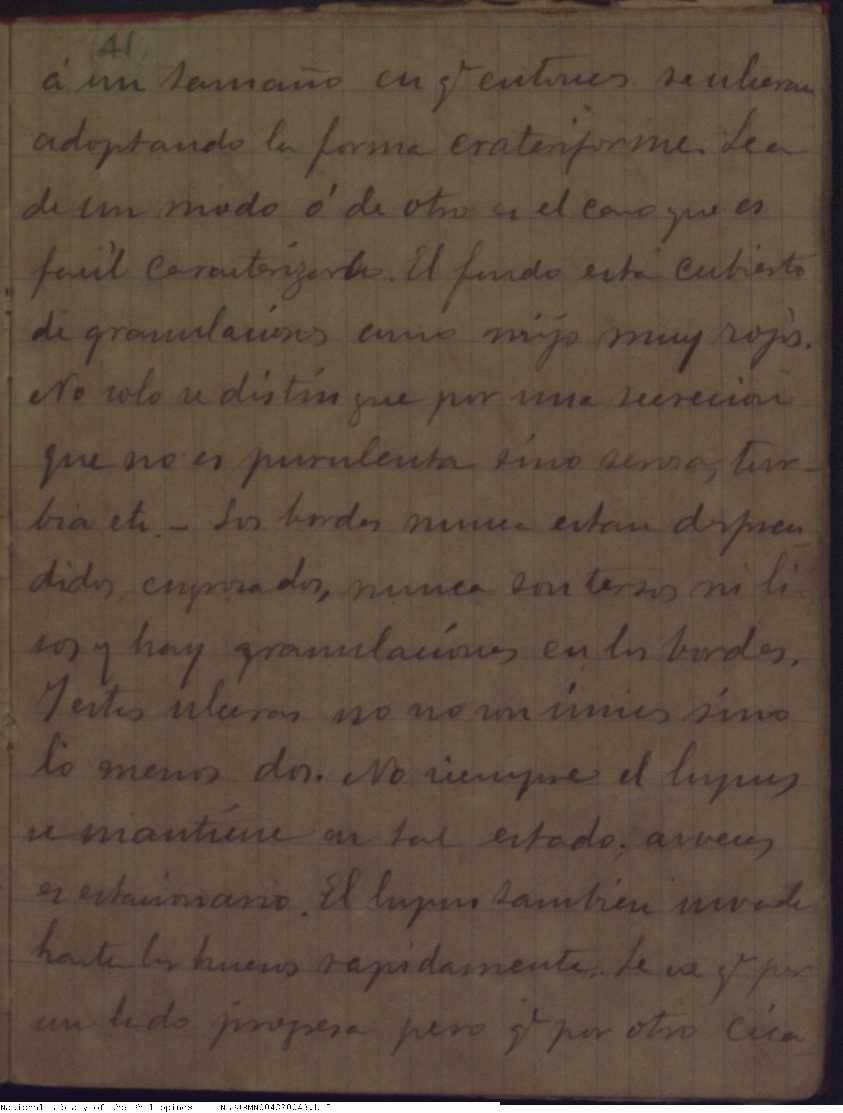 41
á un tamaño en qe entonces se ulceran
adoptando la forma crateriforme. Sea
de un modo ó de otro es el caso que es
facil caracterizarlos. El fondo está cubierto
de granulaciones como mijo muy rojos.
No solo se distingue por una secrecion
que no es purulenta sino serosa, tur-
bia etc. - Los bordes nunca estan despren
didos, engrosados, nunca son tersos ni li-
sos y hay granulaciones en los bordes.
Y estas ulceras no son únicas sino
lo menos dos. No siempre el lupus
se mantiene en tal estado; a veces
es estacionario. El lupus tambien invade
hasta los huesos rapidamente. Se ve qe por
un lado progresa pero qe por otro cica
National Library of the Philippines